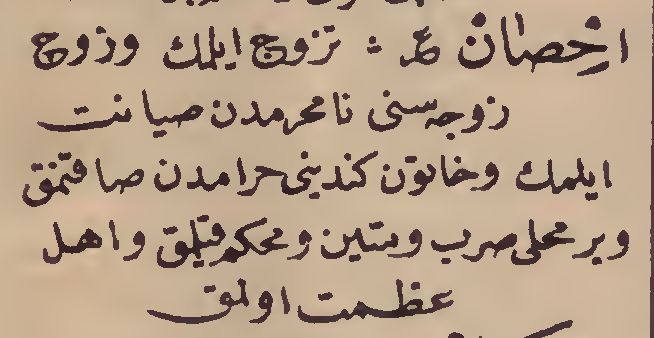 احصان ع : تزوج ایلمك وزوج
زوجه‌سنی نامحرمدن صیانت
ایلمك وخاتون كندینی حرامدن صاقنمق
وبر محلی صرب ومتین ومحكم قیلمق واهل
عظمت اولمق